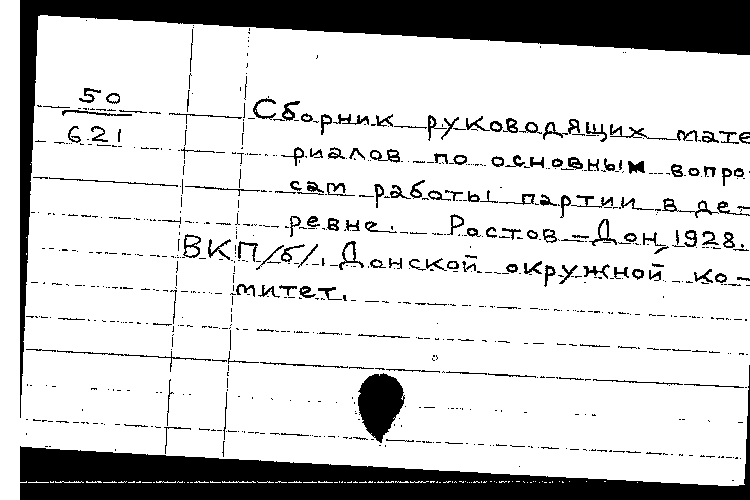 50
621
Сборник руководящих мате
риалов по основным вопро-
сам работы партии в де-
ревне. Ростов-Дон, 1928.
ВКП/б/. Донской окружной ко-
митет.